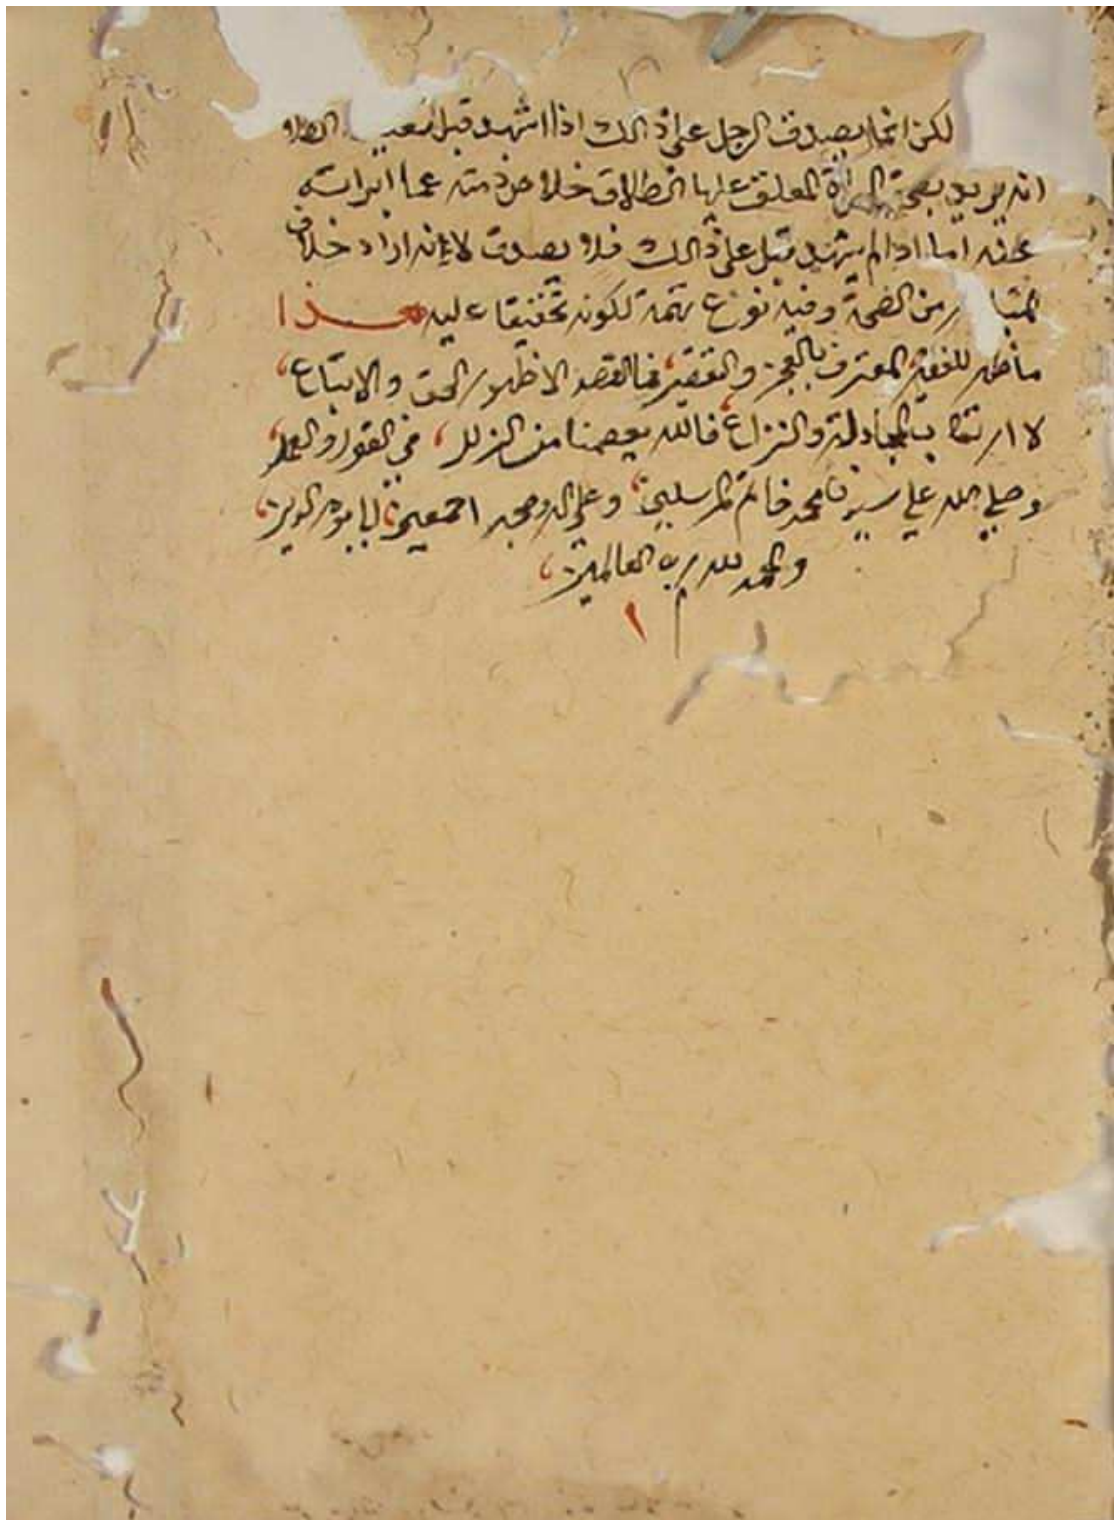 لكن انما يصدق الرجل على ذالك اذا اشهد قبل
انه يريد بصحة المراة المعلق عليها الطلاق خلاص ذمته عما ابراته
عنه اما اذا لم يشهد قبل على ذالك فلا يصدق لانه اراد خلاف
من الصحة وفيه نوع تهمة لكونه تخفيفا عليه هذا
ما ظهر للفقير المعترف بالعجز والتقصير فالقصد الاظهار الحق والاتباع
لا ارتكاب المجادلة والنزاع فالله يعصمنا من الزلل في القول والعمل
وصلى الله على سيدنا محمد خاتم المرسلين وعلى اله وصحبه اجمعين الدين
والحمد لله رب العالمين